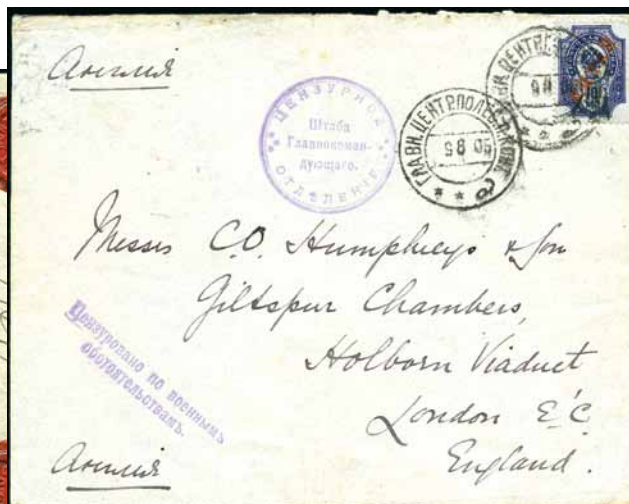 Англия
ЦЕНЗУРНОЕ
Штаба
Главнокоман-
дующаго.
ОТДѢЛЕНІЕ
ГЛАВН. ЦЕНТР. ПОЛЕВ.
9 8 05
ЦЕНТР
Messrs C.O. Humphreys & Son
Giltspur Chambers,
Holborn Viaduct
London E.C
England.
Цензуровано по военнымъ
обстоятельствамъ.
Англия